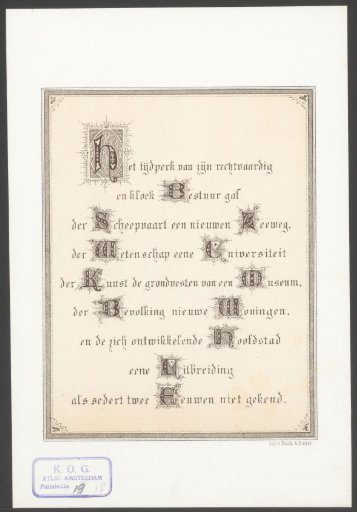 Het tijdperk van zijn rechtvaardig
en kloek Bestuur gaf
der Scheepvaart een nieuwen Zeeweg,
der Wetenschap eene Universiteit
der Kunst de grondvesten van een Museum,
der Bevolking nieuwe Woningen,
en de zich ontwikkelende Hoofdstad
eene Uitbreiding
als sedert twee Eeuwen niet gekend.
K. O. G.
ATLAS AMSTERDAM
Portefeuille 19